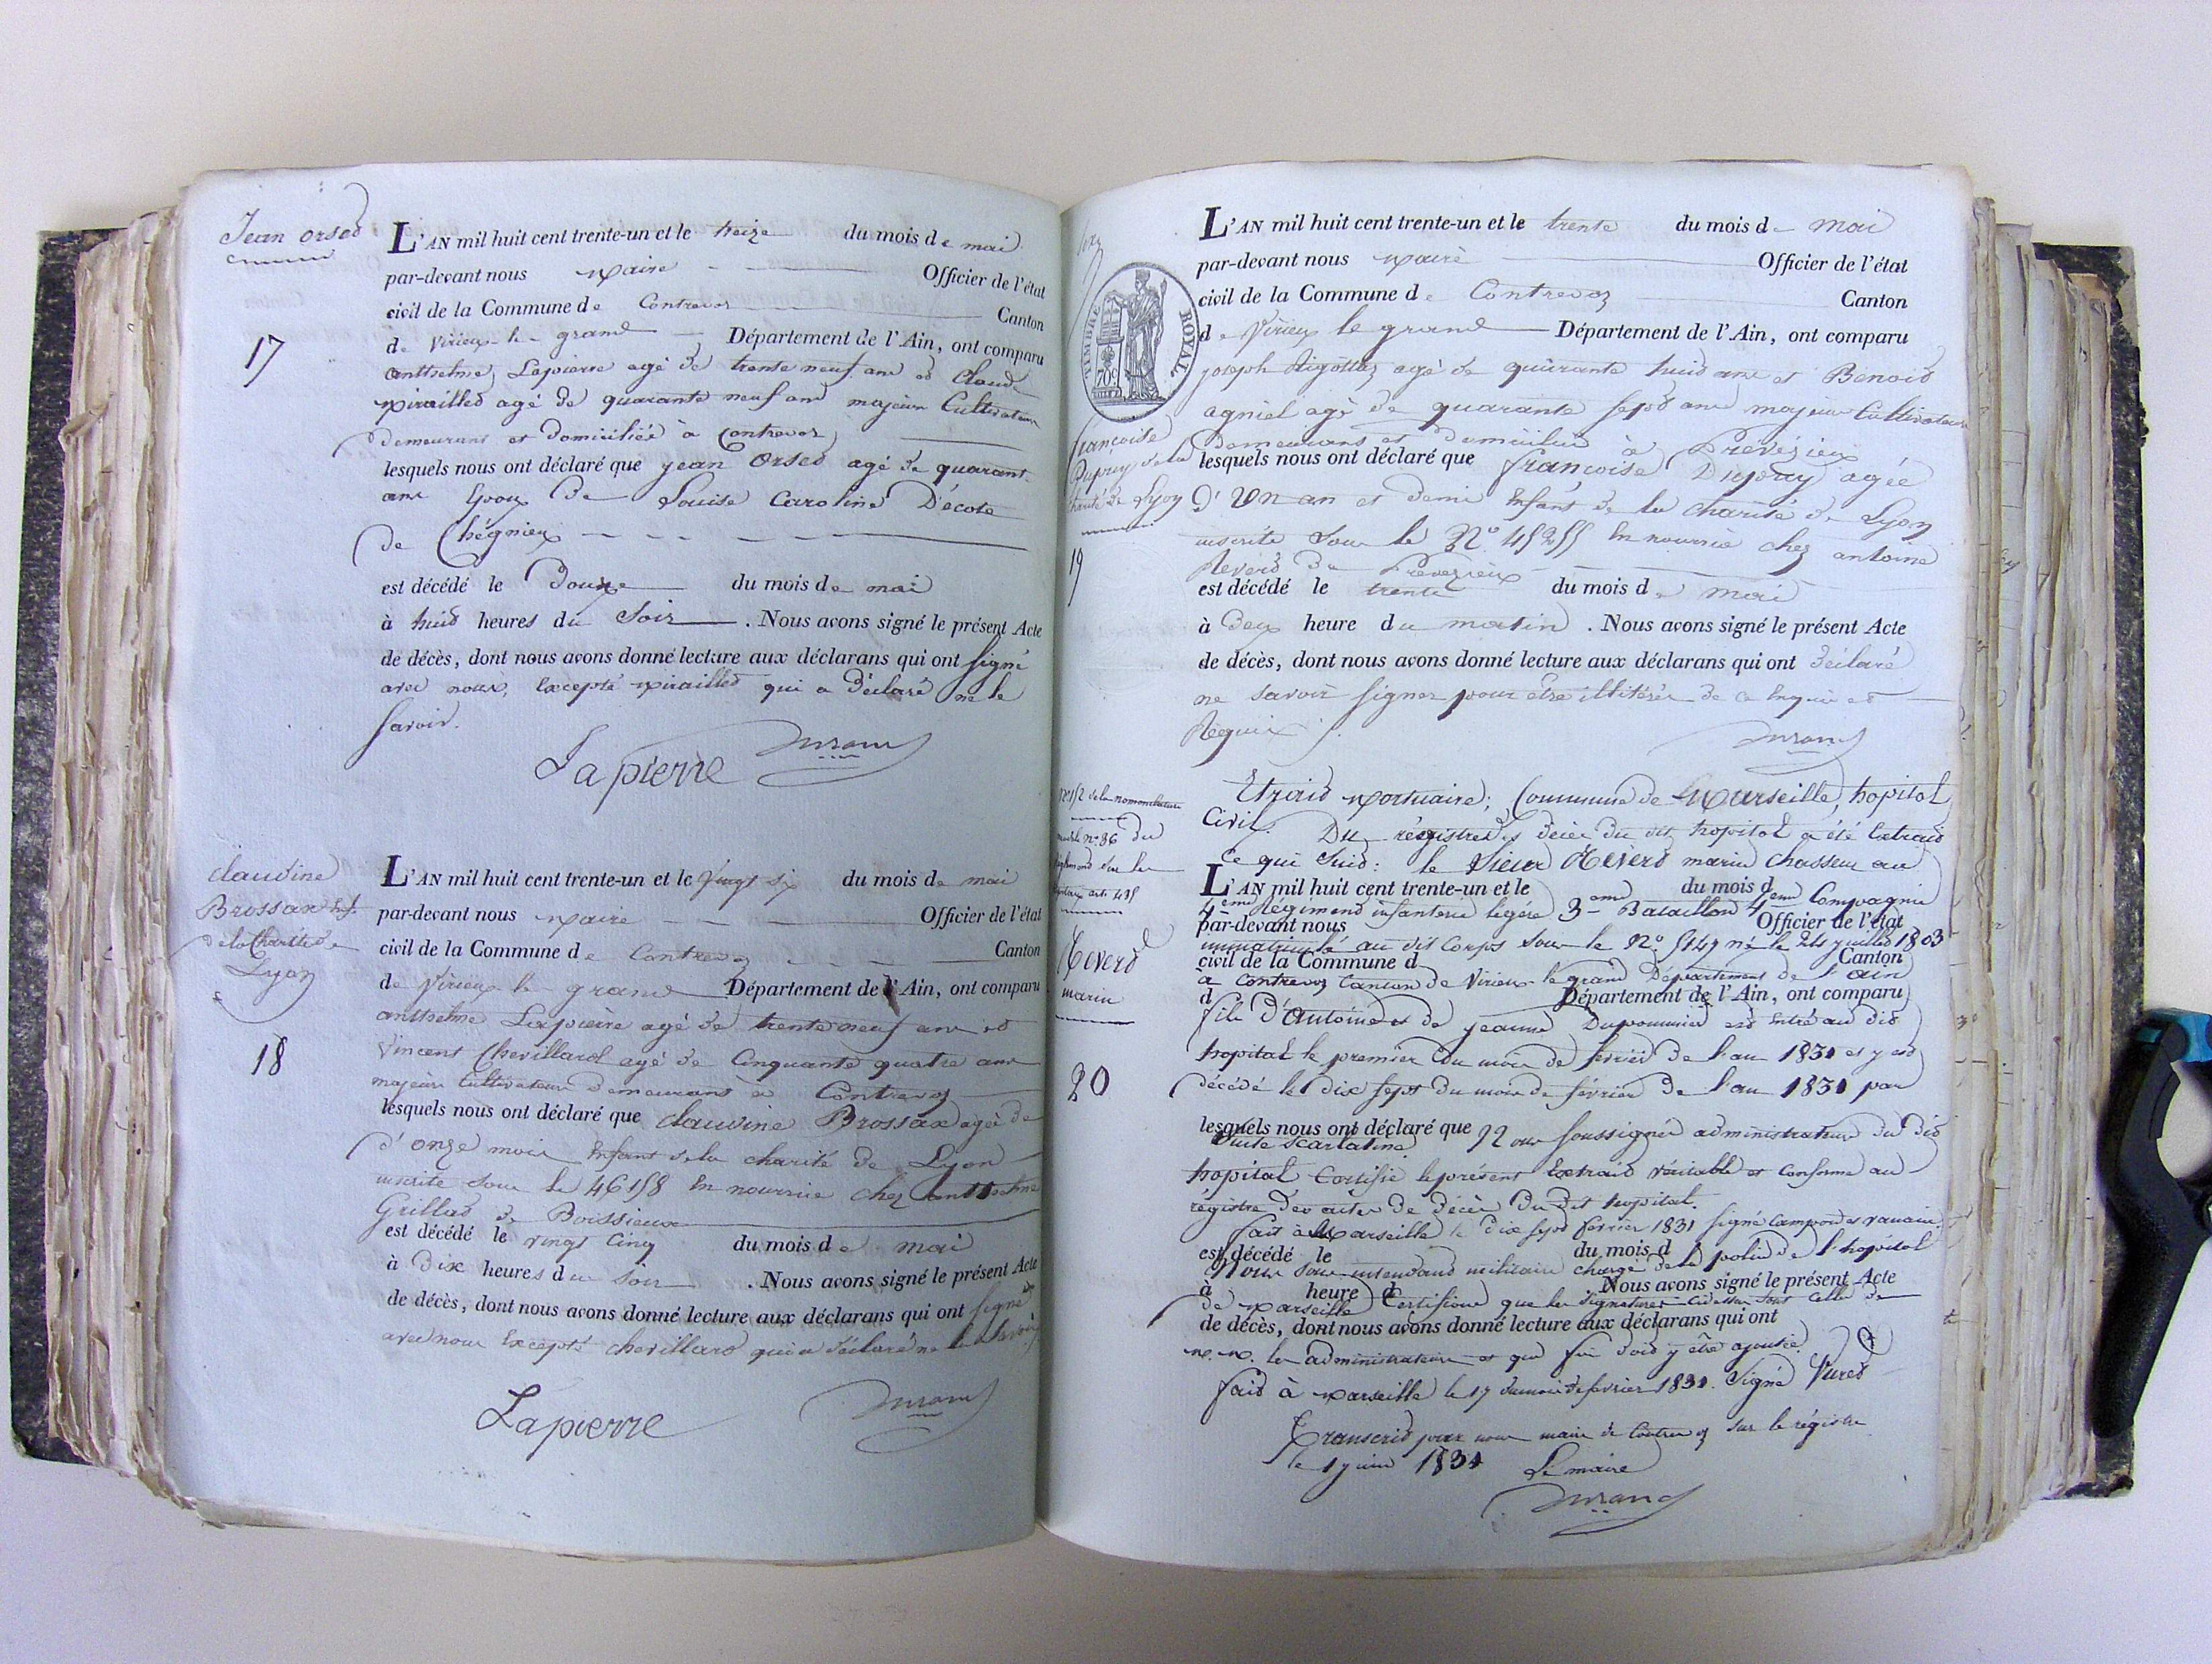 Jean Orset
17
L'AN mil huit cent trente-un et le treize du mois de mai
par-devant nous maire Officier de l'état
civil de la Commune de Contrevoz Canton
de Virieu le grand Département de l'Ain, ont comparu
antthelme Lapierre agé de trente neuf ans et Claude
miraillet agé de quarante neuf ans majeurs Cultivateurs
demeurans et domiciliés à Contrevoz
lesquels nous ont déclaré que jean Orset agé de quarante
ans Epoux de Louise Caroline Décote
de Chégnieu
est décédé le Douze du mois de mai
à huit heures du Soir . Nous avons signé le présent Acte
de décès, dont nous avons donné lecture aux déclarans qui ont signé
avec nous, Excepté miraillet qui a déclaré ne le
savoir.
Lapierre Durand
claudine
Brossax Enf.
de la Charité de
Lyon
18
L'AN mil huit cent trente-un et le Vingt six du mois de mai
par-devant nous maire Officier de l'état
civil de la Commune de Contrevoz Canton
de Virieu le grand Département de l'Ain, ont comparu
antthelme Lapierre agé de trente neuf ans et
Vincent Chevillard agé de Cinquante quatre ans
majeurs Cultivateurs demeurans à Contrevoz
lesquels nous ont déclaré que claudine Brossax agée de
d'onze mois Enfant de la charité de Lyon
inscrite sous le 46158 En nourrice chez antthelme
Grillet de Boissieu
est décédé le vingt cinq du mois de mai
à Dix heures du Soir . Nous avons signé le présent Acte
de décès, dont nous avons donné lecture aux déclarans qui ont signé
avec nous Excepté chevillard qui a déclaré ne le savoir
Lapierre Durand
TIMBRE ROYAL
70c
françoise
Dupuy de la
charité de Lyon
19
L'AN mil huit cent trente-un et le trente du mois de mai
par-devant nous maire Officier de l'état
civil de la Commune de Contrevoz Canton
de Virieu le grand Département de l'Ain, ont comparu
joseph Rigottaz agé de quarante huit ans et Benoit
agniel agé de quarante sept ans majeurs Cultivateurs
demeurans et domiciliés à Prévézieu
lesquels nous ont déclaré que françoise Dupuy agée
d'un an et demi Enfant de la charité de Lyon
inscrite sous le No. 45255 En nourrice chez antoine
Reverd de Prevezieu
est décédé le trente du mois de mai
à Deux heure du matin . Nous avons signé le présent Acte
de décès, dont nous avons donné lecture aux déclarans qui ont déclaré
ne savoir signer pour être illitérés de ce Enquis et
Réquis
Durand
de la nomenclature
modèle no. 36 du
Reverd
marin
20
Extrait mortuaire; Commune de Marseille, hopital
Civil. Du régistre des décès du dit hopital a été Extrait
Ce qui Suit: le Sieur Reverd marin chasseur au
L'AN mil huit cent trente-un et le du mois d
4eme Régiment infanterie legére 3eme Bataillon 4eme Compagnie
par-devant nous Officier de l'état
immatriculé au dit Corps sous le No. 5147 né le 24 juillet 1803
civil de la Commune d Canton
à Contrevoz Canton de Virieu le grand Département de l'ain
d Département de l'Ain, ont comparu
fils d'Antoine et de jeanne Dupommier est Entré au dit
hopital le premier du mois de fevrier de l'an 1831 et y est
décédé le dix sept du mois de février de l'an 1831 par
lesquels nous ont déclaré que Nous soussigné administrateur du dit
suite scarlatine
hopital Certifie le présent Extrait véritable et Conforme au
régistre des actes de décès du dit hopital.
fait à Marseille le dix sept fevrier 1831 signé
est décédé le du mois d
Nous sous-intendant militaire chargé de la police de l'hopital
à heure d Nous avons signé le présent Acte
de marseille Certifions que les signatures Cidessus sont Celle de
de décès, dont nous avons donné lecture aux déclarans qui ont
m. m. les administrateurs et que foi doit y être ajoutée.
fait à marseille le 17 du mois de fevrier 1831. Signé
Transcrit par nous maire de Contrevoz sur le régistre
le 1 juin 1831 Le maire
Durand